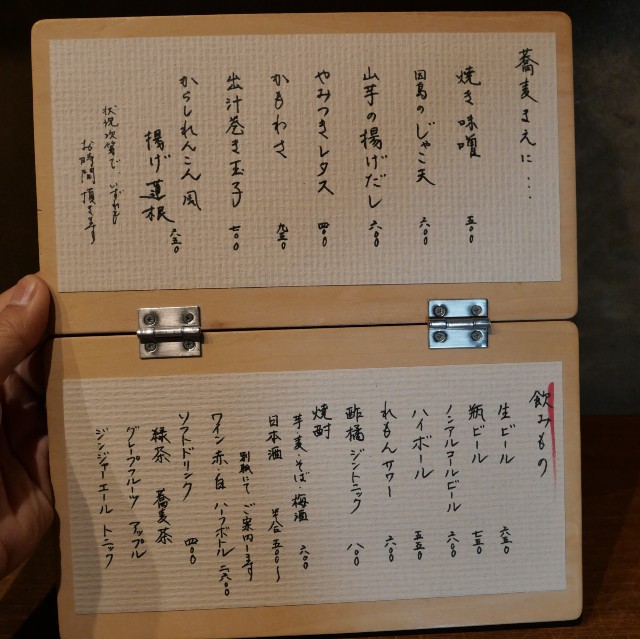 蕎麦まえに...
焼き味噌 五〇〇
因島のじゃこ天 六〇〇
山芋の揚げだし 六〇〇
やみつきレタス 四〇〇
かもわさ 九五〇
出汁巻き玉子 七〇〇
からしれんこん風
揚げ蓮根 六五〇
状況次第で、いずれも
お時間頂きます
飲みもの
生ビール 六五〇
瓶ビール 七五〇
ノンアルコールビール 六〇〇
ハイボール 五五〇
れもんサワー 六〇〇
酢橘ジントニック 八〇〇
焼酎
芋 麦 そば・梅酒 六〇〇
日本酒 半合 五〇〇〜
別紙にてご案内します
ワイン 赤・白 ハーフボトル 二六〇〇
ソフトドリンク 四〇〇
緑茶 蕎麦茶
グレープフルーツ アップル
ジンジャーエール トニック